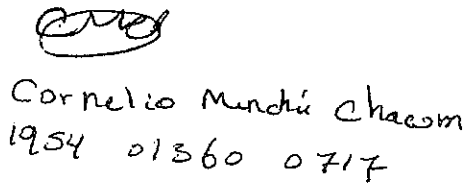 Cornelio Menchú Chacom
1954 01360 0717